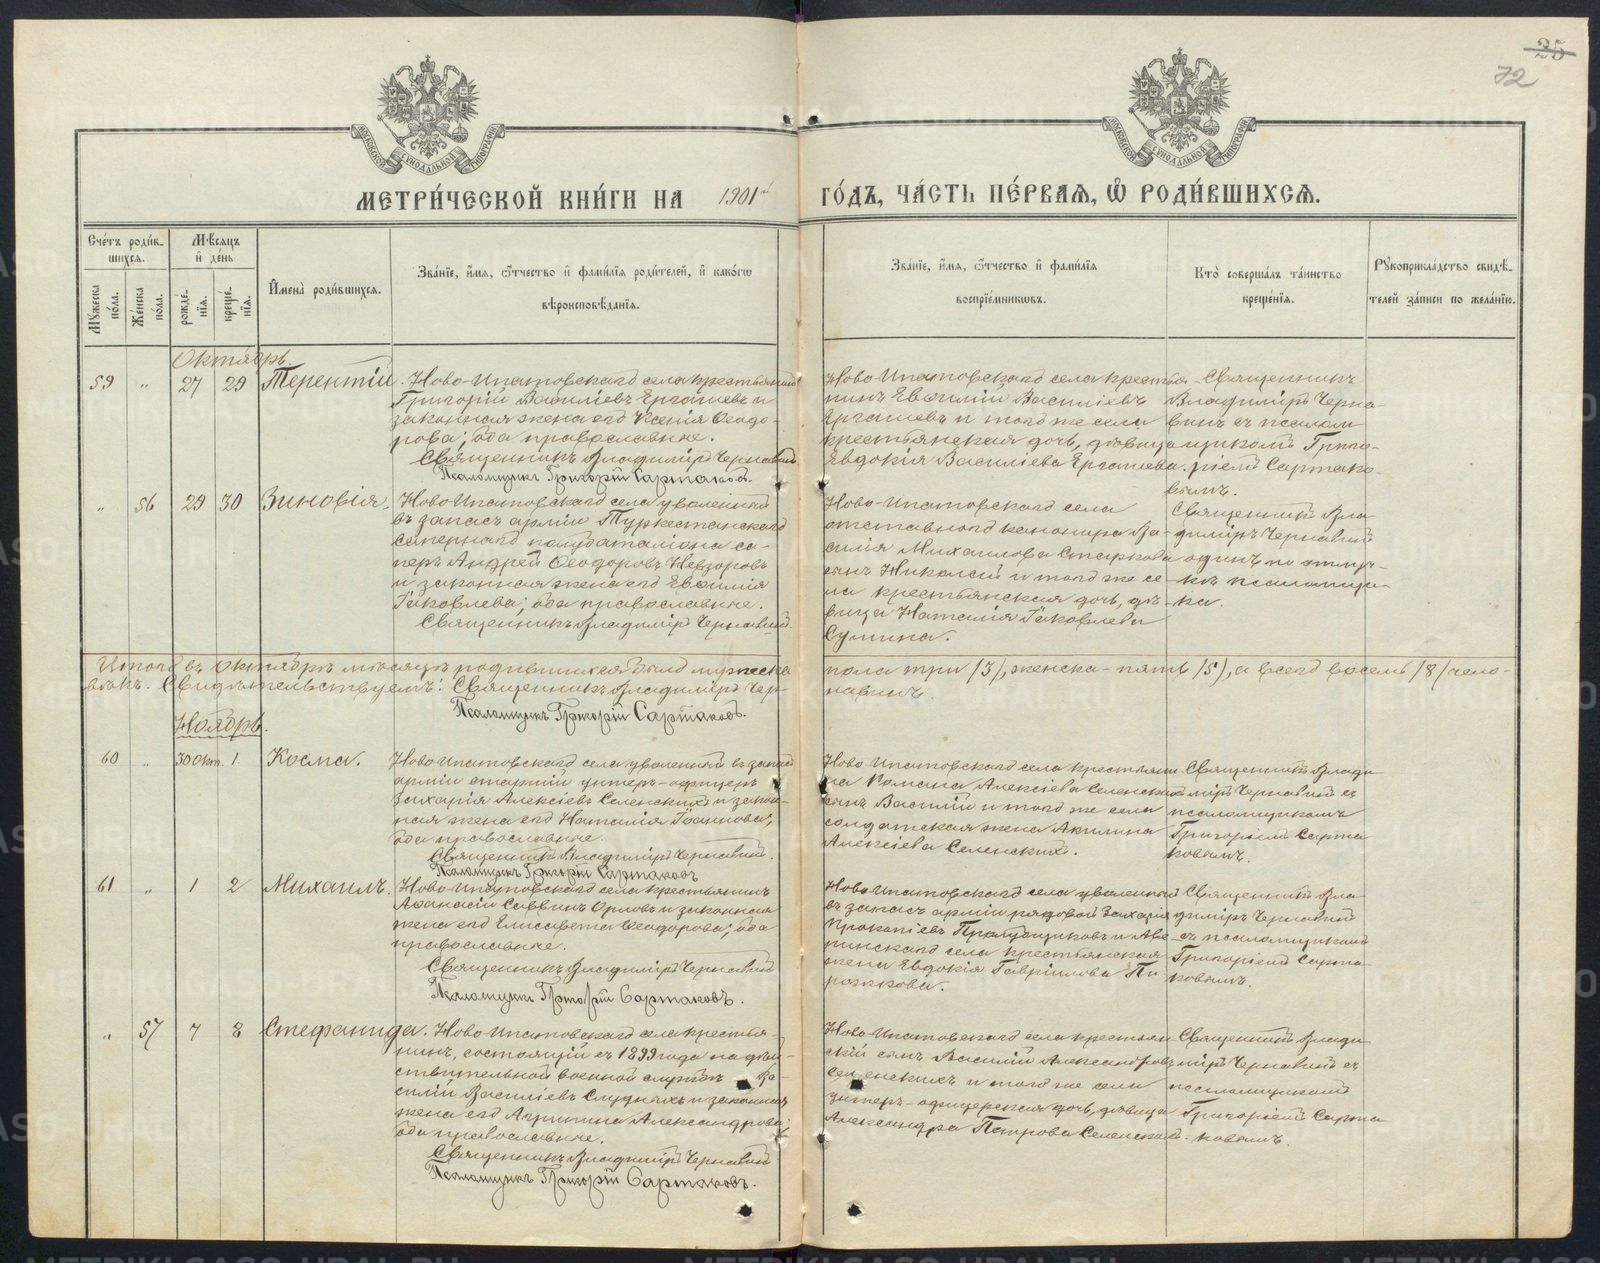 25
72
МОСКОВСКОЙ СѴНОДАЛЬНОЙ ТИПОГРАФІИ
МОСКОВСКОЙ СѴНОДАЛЬНОЙ ТИПОГРАФІИ
МЕТРИ́ЧЕСКОЙ КНИ́ГИ НА 1901й ГО́ДЪ, ЧА́СТЬ ПЕ́РВАѦ, Ѿ РОДИ́ВШИХСѦ.
Сче́тъ роди́в-
шихсѧ.
Мꙋ́жеска по́ла.
Же́нска по́ла.
Мѣ́сѧцъ
и де́нь
рожде́-
нїѧ.
креще́-
нїѧ.
Имена̀ роди́вшихсѧ.
Зва́нїе, и́мѧ, ѻ́тчество и фами́лїѧ роди́телей, и како́гѡ
вѣроисповѣ́данїѧ.
Зва́нїе, и́мѧ, ѻ́тчество и фами́лїѧ
воспрїе́мникѡвъ.
Кто̀ соверша́лъ та́инство
креще́нїѧ.
Рꙋкоприкла́дство свидѣ́-
телей за́писи по жела́нїю.
Октябрь.
59 " 27 29 Терентій.
Ново-Ипатовскаго села крестьянинъ
Григорій Василіевъ Ергашевъ и
законная жена его Ксенія Ѳеодо-
рова; оба православные.
Священникъ Владиміръ Чернавинъ
Псаломщикъ Григорій Сартаковъ.
Ново-Ипатовскаго села крестья-
нинъ Евѳимій Василіевъ
Ергашевъ и того же села
крестьянская дочь, дѣвица
Евдокія Василіева Ергашева.
Священникъ
Владиміръ Черна-
винъ съ псалом-
щикомъ Григо-
ріемъ Сартако-
вымъ.
" 56 29 30 Зиновія.
Ново-Ипатовскаго села уволенный
въ запасъ арміи Туркестанскаго
сапернаго полубаталіона са-
перъ Андрей Ѳеодоровъ Невзоровъ
и законная жена его Евѳимія
Іаковлева; оба православные.
Священникъ Владиміръ Чернавинъ.
Ново-Ипатовскаго села
отставнаго канонира Ва-
силія Михаилова Старкова
сынъ Николай и того же се-
ла крестьянская дочь, дѣ-
вица Наталія Іаковлева
Сумина.
Священникъ Вла-
диміръ Чернавинъ
одинъ по
псаломщи-
ка.
Итого въ октябрѣ мѣсяцѣ родившихся было мужеска пола три /3/, женска - пять /5/, а всего восемь /8/ чело-
вѣкъ. Свидѣтельствуемъ: Священникъ Владиміръ Чер- навинъ.
Псаломщикъ Григорій Сартаковъ.
Ноябрь.
60 " 30 Окт. 1. Косма.
Ново-Ипатовскаго села уволенный въ запасъ
арміи старшій унтеръ-офицеръ
Захарія Алексіевъ Селенскихъ и закон-
ная жена его Наталія Іоаннова;
оба православные.
Священникъ Владиміръ Чернавинъ.
Псаломщикъ Григорій Сартаковъ
Ново-Ипатовскаго села крестьяни-
на Романа Алексіева Селенскихъ
сынъ Василій и того же села
солдатская жена Акилина
Алексіева Селенскихъ.
Священникъ Влади-
міръ Чернавинъ съ
псаломщикомъ
Григоріемъ Сарта
ковымъ.
61 " 1 2 Михаилъ.
Ново-Ипатовскаго села крестьянинъ
Аѳанасій Саввинъ Орловъ и законная
жена его Елисавета Ѳеодорова; оба
православные.
Священникъ Владиміръ Чернавинъ
Псаломщикъ Григорій Сартаковъ.
Ново-Ипатовскаго села уволенный
въ запасъ арміи рядовой Захарія
Прокопіевъ и Аве-
ринскаго села крестьянская
жена Евдокія Гавріилова Пи-
рожкова.
Священникъ Вла-
диміръ Чернавинъ
съ псаломщикомъ
Григоріемъ Сарта-
ковымъ.
" 57 7 8 Стефанида.
Ново-Ипатовскаго села крестья-
нинъ, состоящій съ 1899 года на дѣй-
ствительной военной службѣ Ва-
силій Василіевъ Слудныхъ и законная
жена его Агрипина Александрова;
оба православные.
Священникъ Владиміръ Чернавинъ
Псаломщикъ Григорій Сартаковъ.
Ново-Ипатовскаго села крестьян-
скій сынъ Василій Александровъ
Селенскихъ и того же села
унтеръ-офицерская дочь, дѣвица
Александра Петрова Селенскихъ.
Священникъ Влади-
міръ Чернавинъ съ
псаломщикомъ
Григоріемъ Сарта
ковымъ.
METRIKI.GASO-URAL.RU